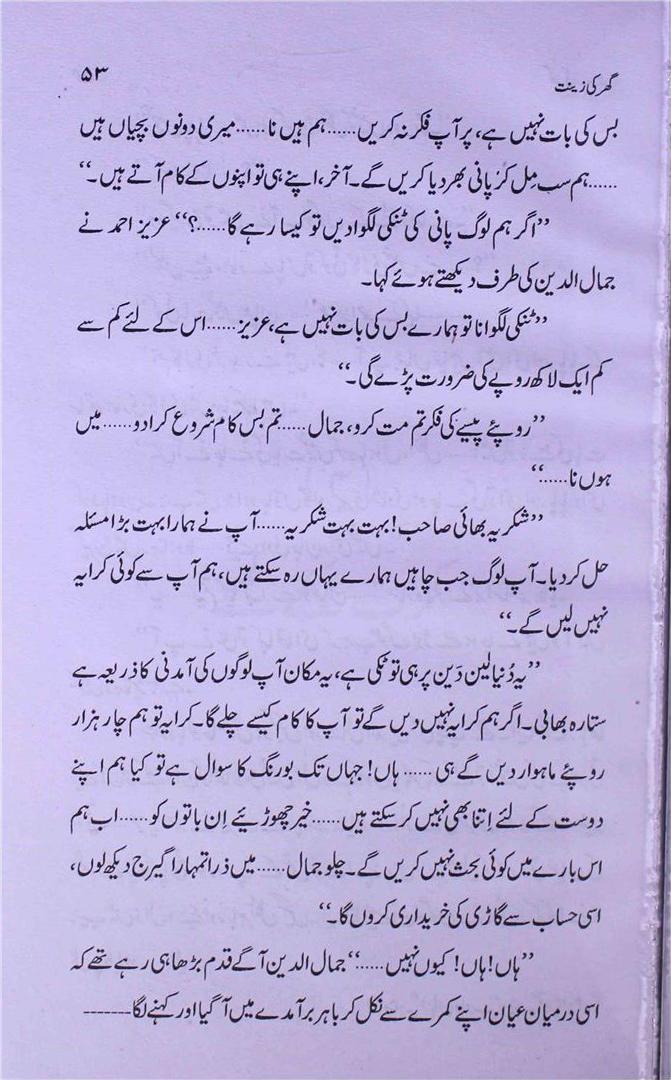 گھر کی زینت ۵۳
بس کی بات نہیں ہے، پر آپ فکر نہ کریں......ہم ہیں نا......میری دونوں بچیاں ہیں
......ہم سب مِل کر پانی بھر دیا کریں گے۔ آخر، اپنے ہی تو اپنوں کے کام آتے ہیں۔“
”اگر ہم لوگ پانی کی ٹنکی لگوا دیں تو کیسا رہے گا......؟“ عزیز احمد نے
جمال الدین کی طرف دیکھتے ہوئے کہا۔
”ٹنکی لگوانا تو ہمارے بس کی بات نہیں ہے، عزیز......اس کے لئے کم سے
کم ایک لاکھ روپے کی ضرورت پڑے گی۔“
”روپئے پیسے کی فکر تم مت کرو، جمال......تم بس کام شروع کرا دو......میں
ہوں نا......“
”شکریہ بھائی صاحب! بہت بہت شکریہ......آپ نے ہمارا بہت بڑا مسئلہ
حل کر دیا۔ آپ لوگ جب چاہیں ہمارے یہاں رہ سکتے ہیں، ہم آپ سے کوئی کرایہ
نہیں لیں گے۔“
”یہ دُنیا لین دَین پر ہی تو ٹکی ہے، یہ مکان آپ لوگوں کی آمدنی کا ذریعہ ہے
ستارہ بھابی۔ اگر ہم کرایہ نہیں دیں گے تو آپ کا کام کیسے چلے گا۔ کرایہ تو ہم چار ہزار
روپئے ماہوار دیں گے ہی...... ہاں! جہاں تک بورنگ کا سوال ہے تو کیا ہم اپنے
دوست کے لئے اِتنا بھی نہیں کر سکتے ہیں......خیر چھوڑیئے اِن باتوں کو......اب ہم
اس بارے میں کوئی بحث نہیں کریں گے۔ چلو جمال......میں ذرا تمہارا گیرج دیکھ لوں،
اسی حساب سے گاڑی کی خریداری کروں گا۔“
”ہاں! ہاں! کیوں نہیں.....“ جمال الدین آگے قدم بڑھا ہی رہے تھے کہ
اسی درمیان عیان اپنے کمرے سے نکل کر باہر برآمدے میں آ گیا اور کہنے لگا-------